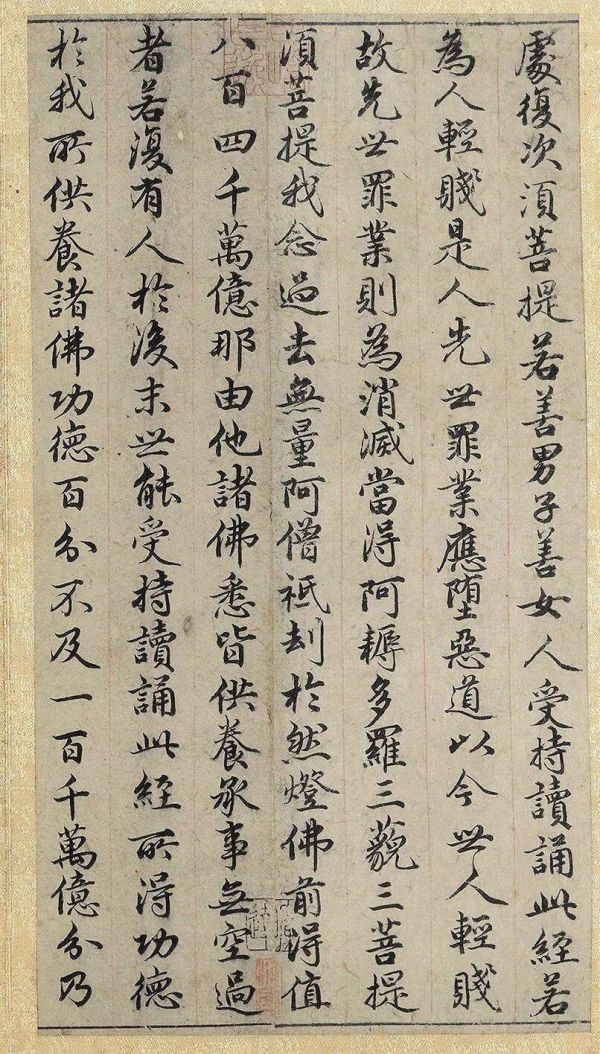 處復次須菩提若善男子善女人受持讀誦此經若
為人輕賤是人先世罪業應墮惡道以今世人輕賤
故先世罪業則為消滅當得阿耨多羅三藐三菩提
須菩提我念過去無量阿僧祇劫於然燈佛前得值
八百四千萬億那由他諸佛悉皆供養承事無空過
者若復有人於後末世能受持讀誦此經所得功德
於我所供養諸佛功德百分不及一百千萬億分乃